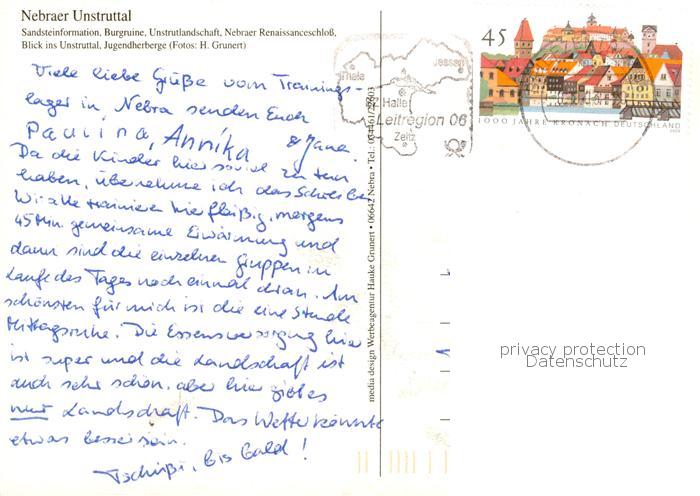 Nebraer Unstruttal
Sandsteininformation, Burgruine, Unstrutlandschaft, Nebraer Renaissanceschloß,
Blick ins Unstruttal, Jugendherberge (Fotos: H. Grunert)
Viele liebe Grüße vom Trainings-
lager in Nebra senden Euch
Paulina, Annika & Jana.
Da die Kinder hier soviel zu tun
haben, übernehme ich das Schreiben.
Wir alle trainieren hier fleißig, morgens
45 Min. gemeinsame Erwärmung und
dann sind die einzelnen Gruppen im
Laufe des Tages noch einmal dran. Am
schönsten für mich ist die eine Stunde
Mittagsruhe. Die Essensversorgung hier
ist super und die Landschaft ist
auch sehr schön, aber hier gibt es
nur Landschaft. Das Wetter könnte
etwas besser sein.
Tschüßi, bis bald!
media design Werbeagentur Hauke Grunert • 06642 Nebra • Tel.:
Thale
Jessen
Halle
Leitregion 06
Zeitz
45
1000 JAHRE KRONACH DEUTSCHLAND
privacy protection
Datenschutz